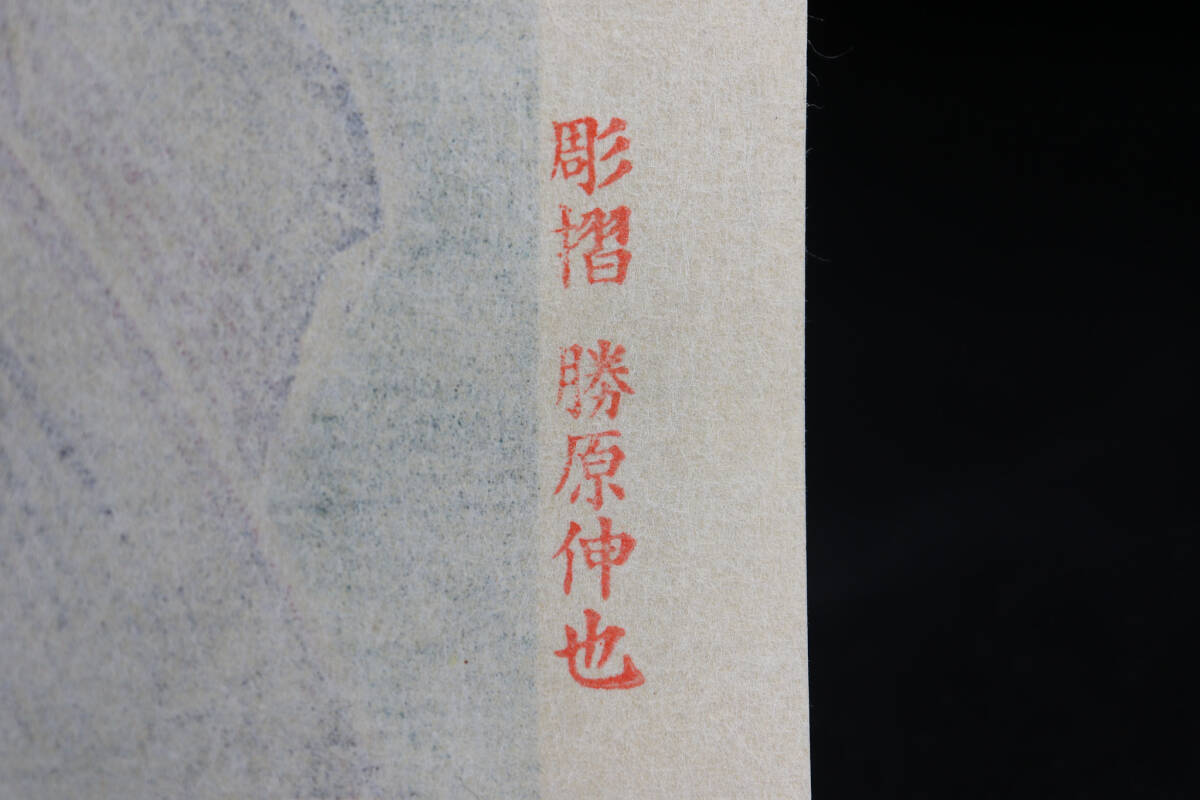 彫摺 勝原伸也